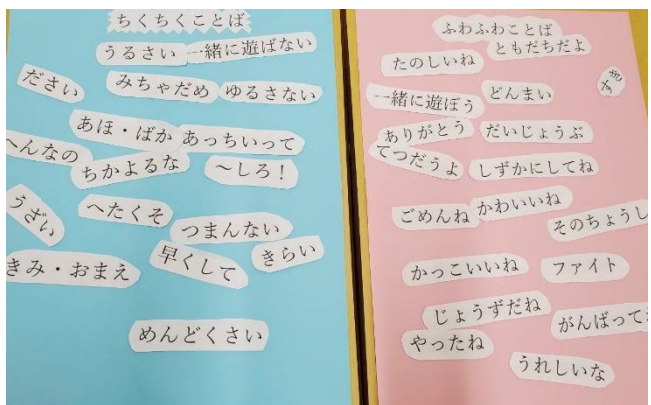 ちくちくことば
うるさい
一緒に遊ばない
ださい
みちゃだめ
ゆるさない
あほ・ばか
あっちいって
へんなの
ちかよるな
〜しろ!
うざい
へたくそ
つまんない
きらい
きみ・おまえ
早くして
めんどくさい
ふわふわことば
ともだちだよ
たのしいね
すき
一緒に遊ぼう
どんまい
ありがとう
だいじょうぶ
てつだうよ
しずかにしてね
ごめんね
かわいいね
そのちょうし
かっこいいね
ファイト
じょうずだね
がんばって
やったね
うれしいな